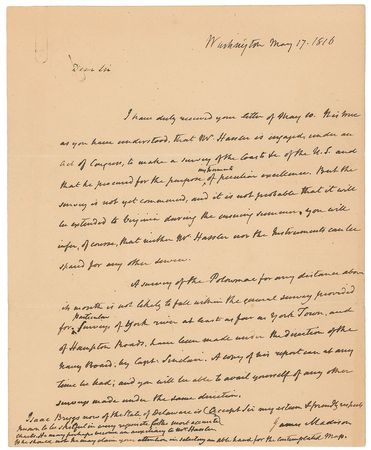 Washington May 17. 1816
Dear Sir
I have duly received your letter of May 10. It is true
as you have understood, that Mr Hassler is engaged, under an
Act of Congress, to make a survey of the Coast &c of the U.S. and
that he procured for the purpose instruments of peculiar excellence. But the
survey is not yet commenced, and it is not probable that it will
be extended to Virginia during the ensuing summer. You will
infer, of course, that neither Mr Hassler nor the Instruments can be
spared for any other service.
A survey of the Potowmac for any distance above
its mouth is not likely to fall within the general survey provided
for. particular Surveys of York river at least as far as York Town, and
of Hampton Roads, have been made under the direction of the
Navy Board, by Capt. Sinclair. A copy of his report can at any
time be had; and you will be able to avail yourself of any other
surveys made under the same direction.
Accept Sir my esteem & friendly respects
James Madison
Isaac Briggs now of the State of Delaware is
known to be skilful in every requisite for the most accurate
charts. He may perhaps become an auxiliary to Mr Hassler.
If he should not he may claim your attention in selecting an able hand for the contemplated Map.